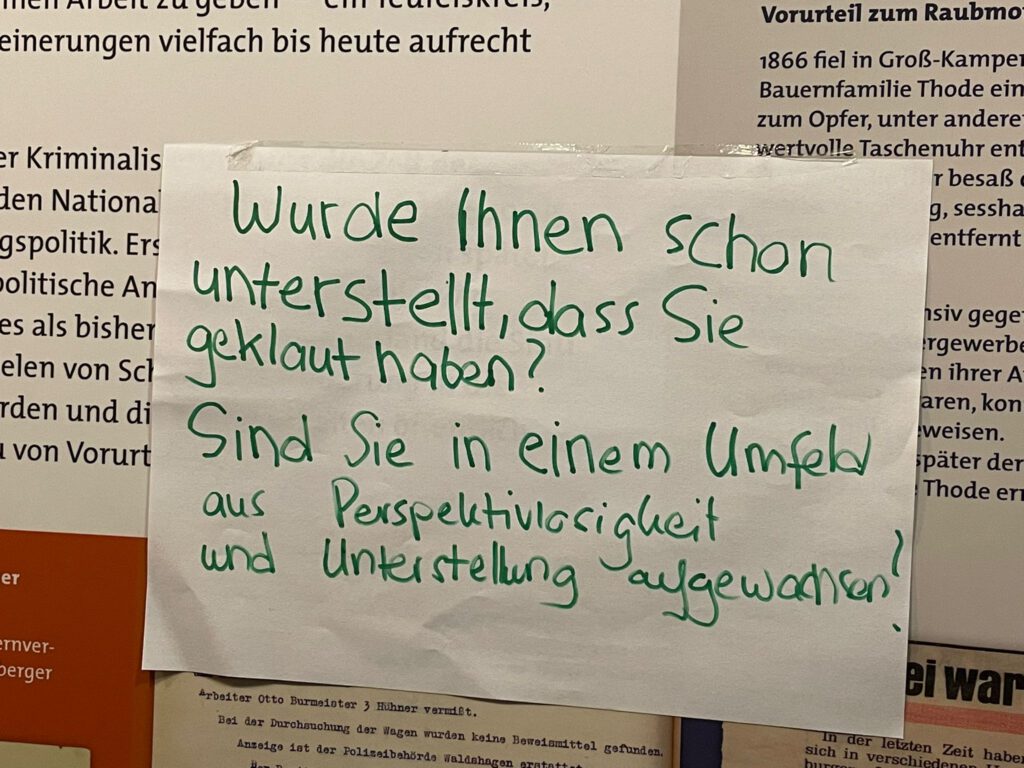 einerungen vielfach bis heute aufrecht
er Kriminalis
den Nationa
gspolitik. Ers
politische An
es als bisher
elen von Sch
rden und di
von Vorurt
Vorurteil zum Raubmo
1866 fiel in Groß-Kampen
Bauernfamilie Thode ein
zum Opfer, unter andere
wertvolle Taschenuhr ent
r besaß
g, sessha
entfernt
nsiv gege
rgewerbe
n ihrer A
aren, kon
weisen.
später der
Thode erm
Wurde Ihnen schon
unterstellt, dass Sie
geklaut haben?
Sind Sie in einem Umfeld
aus Perspektivlosigkeit
und Unterstellung aufgewachsen?
er
ernver-
berger
Arbeiter Otto Burmeister 3 Hühner vermißt.
Bei der Durchsuchung der Wagen wurden keine Beweismittel gefunden.
Anzeige ist der Polizeibehörde Waldshagen erstattet
ei war
In der letzten Zeit habe
sich in verschiedenen